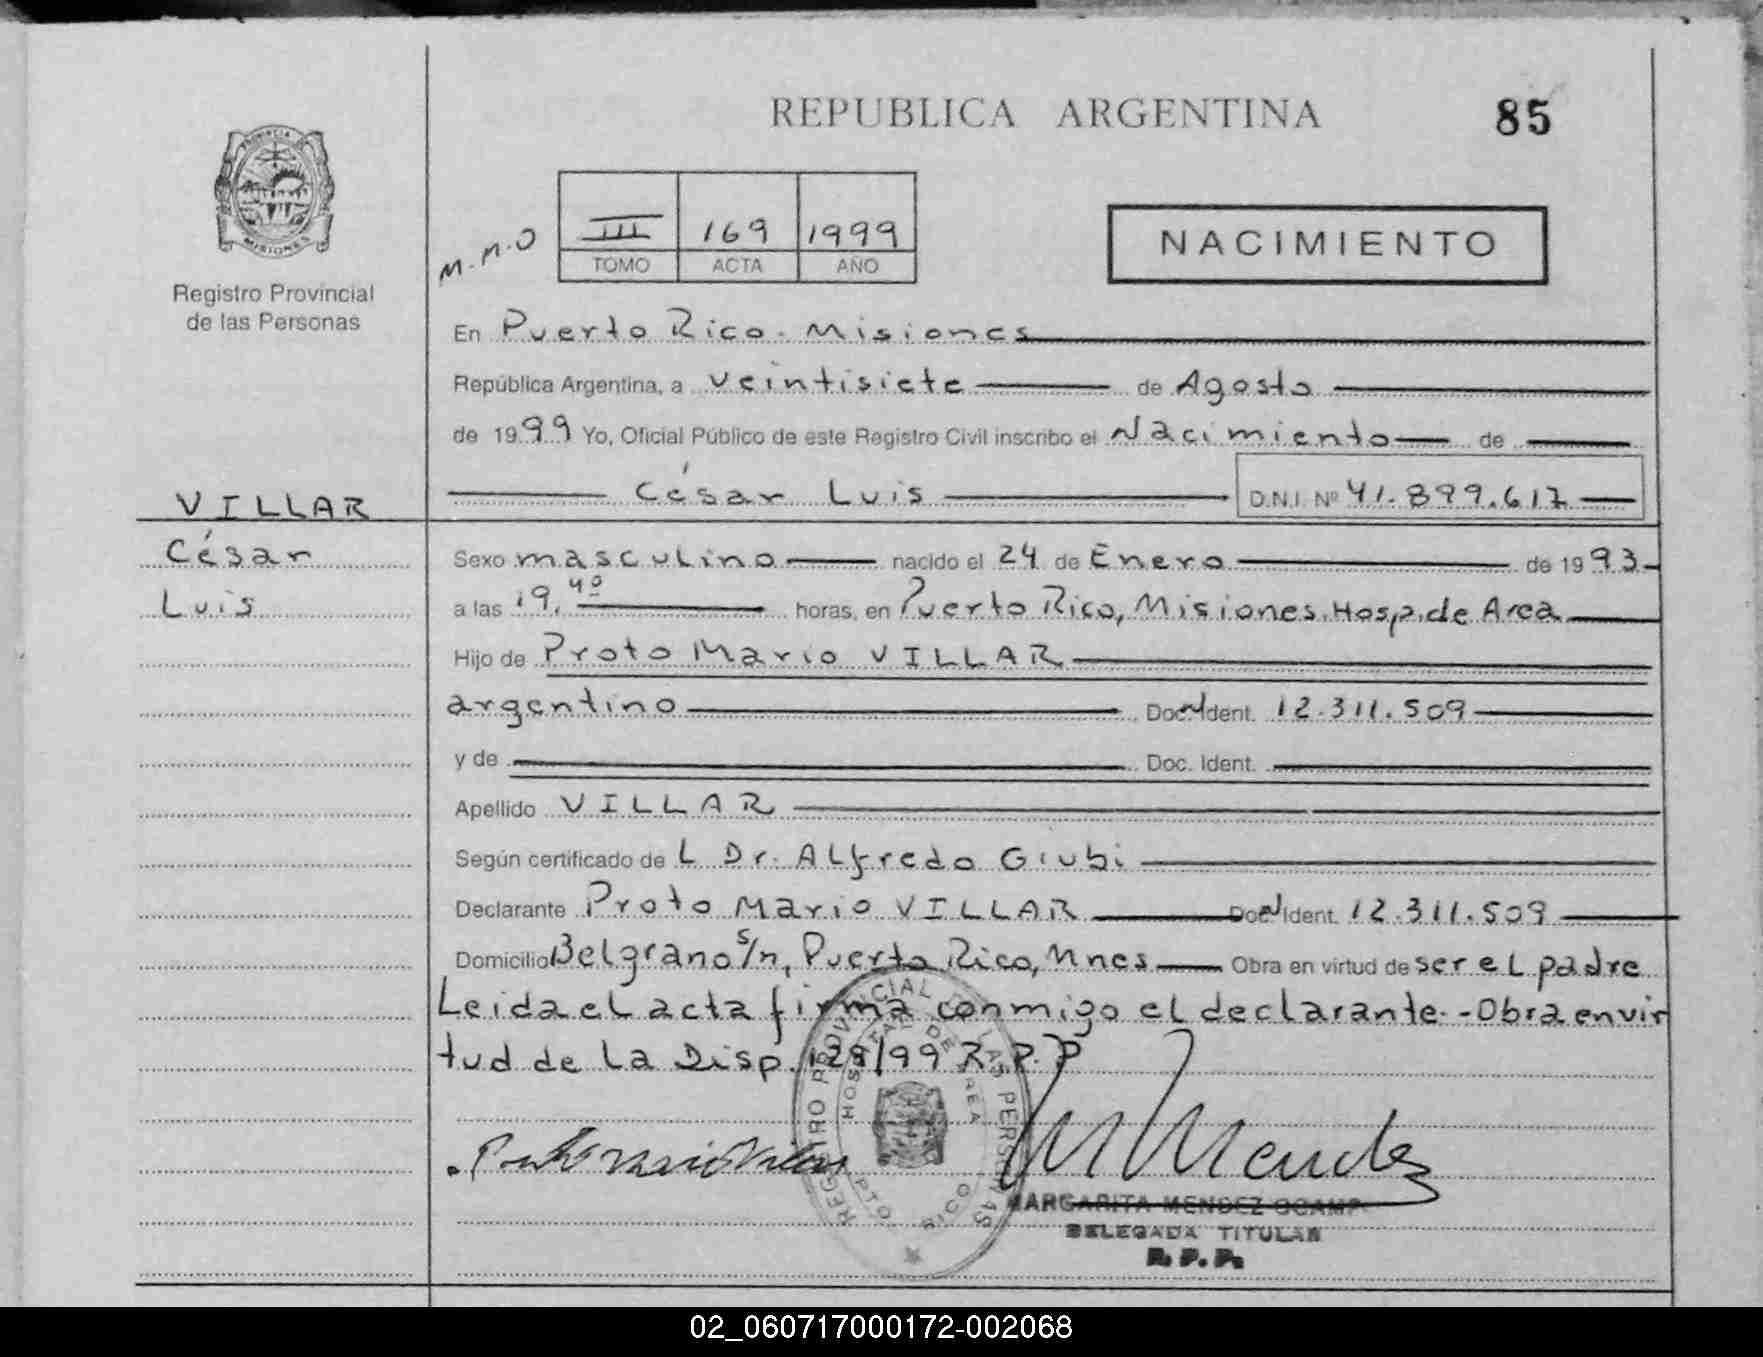 REPUBLICA ARGENTINA
85
PROVINCIA DE
MISIONES
Registro Provincial
de las Personas
M.M.O
III 169 1999
TOMO ACTA AÑO
NACIMIENTO
En Puerto Rico - Misiones
República Argentina, a veintisiete de Agosto
de 1999 Yo, Oficial Público de este Registro Civil inscribo el Nacimiento de
César Luis D.N.I. Nº 41.899.617
VILLAR
César
Luis
Sexo masculino nacido el 24 de Enero de 1993
a las 19,40 horas, en Puerto Rico, Misiones. Hosp. de Area
Hijo de Proto Mario VILLAR
argentino Doc. Ident. 12.311.509
y de Doc. Ident.
Apellido VILLAR
Según certificado de L Dr. Alfredo Giubi
Declarante Proto Mario VILLAR Doc. Ident. 12.311.509
Domicilio Belgrano s/n, Puerto Rico, Mnes Obra en virtud de ser el padre
Leida el acta firma conmigo el declarante.-Obra en vir
tud de la Disp. 129/99 R.P.P
Proto Mario Villar
M Mendez
REGISTRO PROVINCIAL DE LAS PERSONAS
HOSPITAL DE AREA
PTO. RICO
MARGARITA MENDEZ OCAMP
DELEGADA TITULAR
R. P. P.
02_060717000172-002068